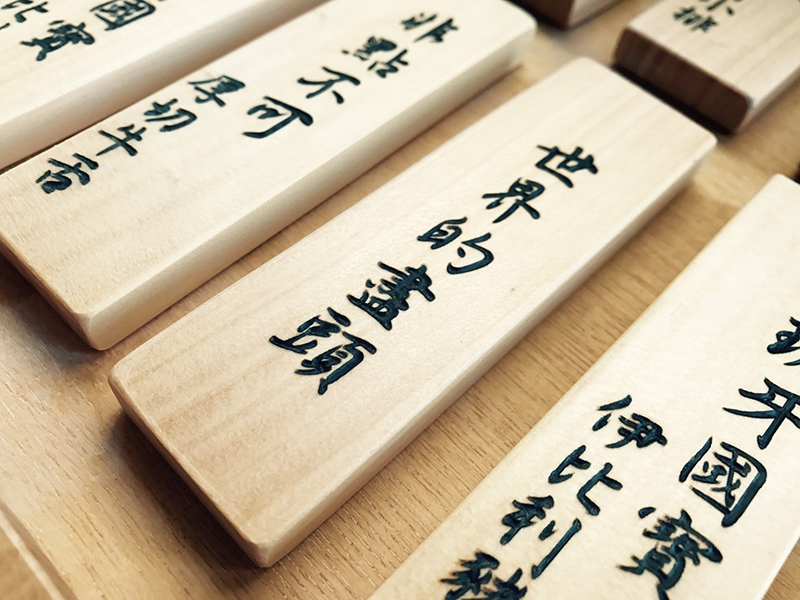 國寶
比
非點不可
厚切牛舌
世界的盡頭
排
牙國寶
伊比利豬